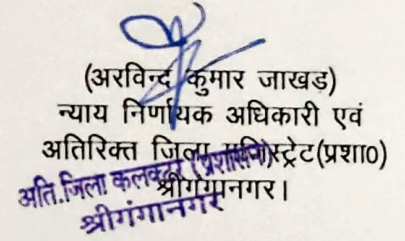 (अरविन्द कुमार जाखड़)
न्याय निर्णायक अधिकारी एवं
अतिरिक्त जिला मजिस्ट्रेट(प्रशा0)
श्रीगंगानगर।
अति.जिला कलक्टर (प्रशासन)
श्रीगंगानगर